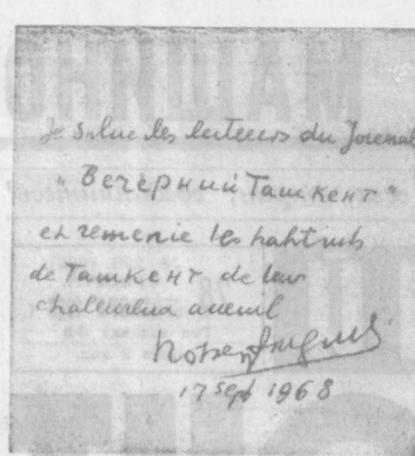 Je salue les lecteurs du Journal
"Вечерний Ташкент"
et remercie les habitants
de Ташкент de leur
chaleureux accueil
Robert
17 sept 1968